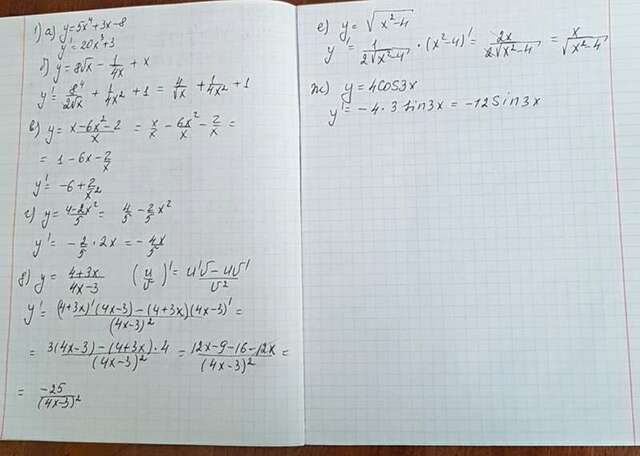 1) а) y = 5x⁴ + 3x - 8
y' = 20x³ + 3
б) y = 8√x - 1/4x + x
y' = 8⁴/2√x + 1/4x² + 1 = 4/√x + 1/4x² + 1
в) y = x - 6x² - 2/x = x/x - 6x²/x - 2/x =
= 1 - 6x - 2/x
y' = -6 + 2/x²
г) y = 4 - 2x²/5 = 4/5 - 2/5 x²
y' = - 2/5 · 2x = - 4x/5
д) y = 4 + 3x/4x - 3 (u/v)' = u'v - uv'/v²
y' = (4 + 3x)'(4x - 3) - (4 + 3x)(4x - 3)'/(4x - 3)² =
= 3(4x - 3) - (4 + 3x) · 4/(4x - 3)² = 12x - 9 - 16 - 12x/(4x - 3)² =
= -25/(4x - 3)²
е) y = √x² - 4
y' = 1/2√x² - 4 · (x² - 4)' = 2x/2√x² - 4 = x/√x² - 4
ж) y = 4cos3x
y' = -4 · 3 sin3x = -12 sin3x